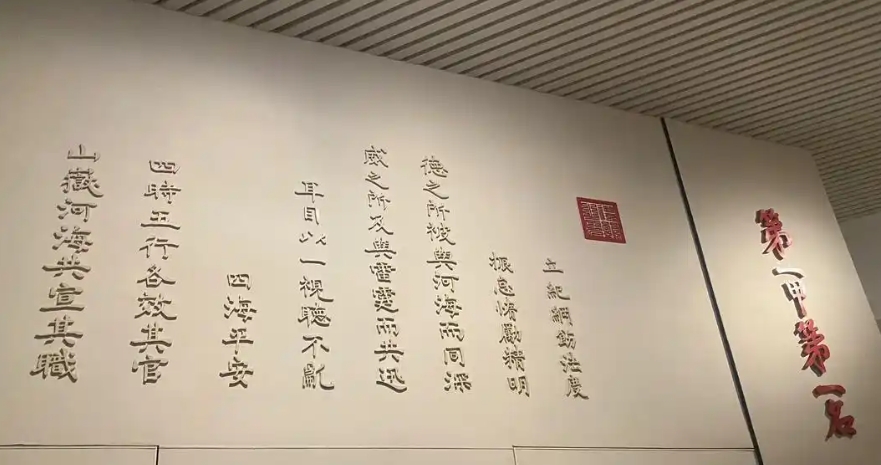 第一甲第一名
立紀綱飭法度
振怠惰勵精明
德之所被與河海而同深
威之所及與雷霆而共迅
耳目以一視聽不亂
四海平安
四時五行各效其官
山嶽河海共宣其職